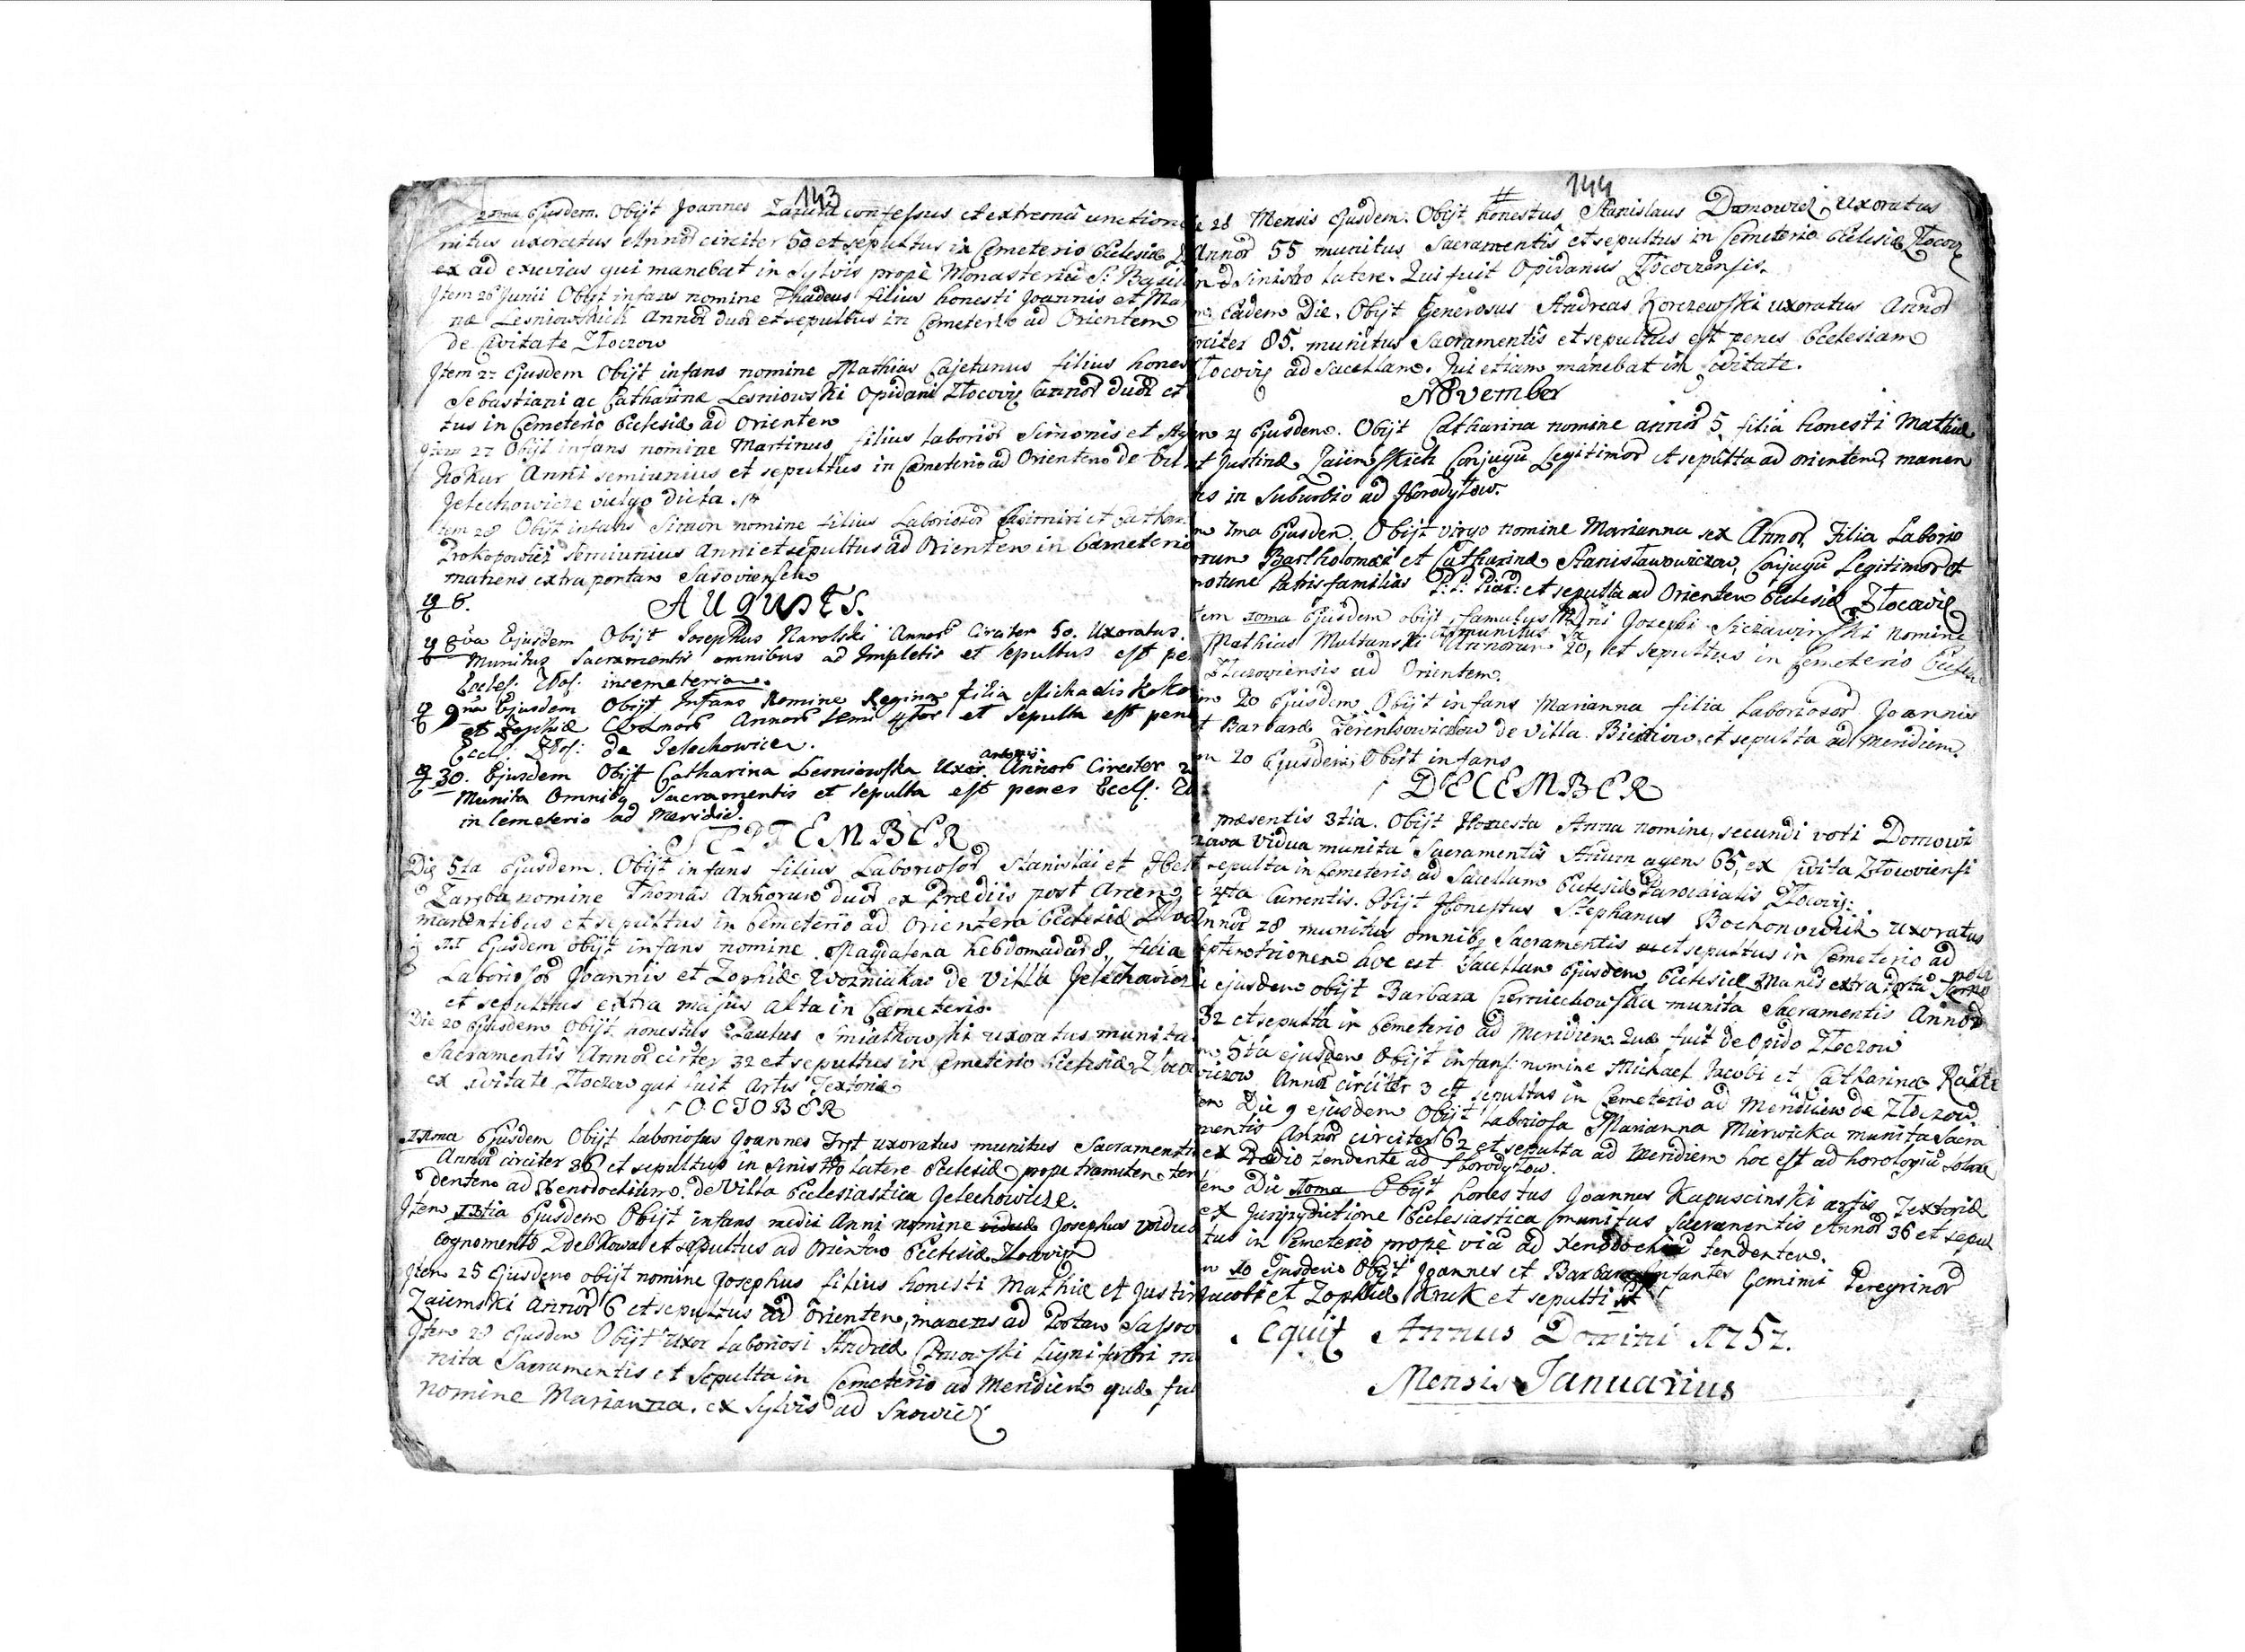 143
Ejusdem. Obijt Joannes Zazula confessus et extrema unctione
nitus uxoratus Annor circiter 60 et sepultus in Cemeterio Ecclesiæ
ex ad exuvias qui manebat in Sylvis prope Monasteriũ S: Basil
Item 26 Junii Obijt infans nomine Thadeus filius honesti Joannis et Mar
næ Lesniowskich Annor duor et sepultus in Cemeterio ad Orientem
de Civitate Złoczow
Item 27 Ejusdem Obijt infans nomine Mathias Cajetanus filius hones
Sebastiani ac Catharinæ Lesniowski Opidani Złocovię annor duor et
tus in Cemeterio Ecclesiæ ad Orientem
Item 27 Obijt infans nomine Martinus filius laborior Simonis et
Kokur Anni semiunius et sepultus in Cæmeterio ad Orientem de
Jelechowicze vulgo dicta
Item 28 Obijt infans Simon nomine filius Laboriosor Casimiri et Cathar
Prokopowicz semiunius Anni et sepultus ad Orientem in Cæmeterio
manens extra portam Sasoviensem
AUGUSTUS.
8va Ejusdem Obijt Josephus Narolski Annorũ Circiter 50. Uxoratus.
Munitus Sacramentis omnibus ad Impletis et Sepultus est pe
Eccles: Złos: in cemeteriam.
9na Ejusdem Obijt Infans Nomine Regina filia Michaelis Koko
et Zophiæ Annorũ Semi et Sepulta est pen
Eccl: Złos: de Jelechowicze.
30. Ejusdem Obijt Catharina Lesniowska Uxor Antonij Annorũ Circiter 2
Munita Omnibg Sacramentis et Sepulta est penes Eccl:
in Cemeterio ad Meridiẽ.
SEPTEMBER
Die 5ta Ejusdem. Obijt infans filius Laboriosor Stanislai et Hel
Zaręba nomine Thomas Annorum duor ex Prædiis post Arcem
manentibus et sepultus in Cemeterio ad Orientem Ecclesiæ Złoc
Ejusdem obijt infans nomine Magdalena hebdomadar 8 filia
Laboriosor Joannis et Zophiæ Wozniakow de Villa Jelechowicz
et sepultus extra majus alta in Cæmeterio.
Die 20 Ejusdem Obijt honestus Paulus Smiatkowski uxoratus munitus
Sacramentis Annor circiter 32 et sepultus in Cemeterio Ecclesiæ Złoco
ex Civitate Złoczow qui fuit Artis Textoriæ
OCTOBER
11ma Ejusdem Obijt laboriosus Joannes uxoratus munitus Sacramentis
Annor circiter 36 et sepultus in sinistro latere Ecclesiæ prope tramitem ten
dentem ad Xenodochium. de Villa Ecclesiastica Jelechowicze.
Item 13tia Ejusdem Obijt infans medii Anni nomine Josephus viduæ
cognomento Zdebkowa et sepultus ad Orientem Ecclesiæ Złocovię
Item 25 Ejusdem obijt nomine Josephus filius honesti Mathiæ et Justin
Zaiemski Annor 6 et sepultus ad Orientem, manens ad Portam Sassov
Item 28 Ejusdem Obijt uxor laboriosi Andreæ lignifabri m
nita Sacramentis et Sepulta in Cemeterio ad Meridiem quæ fu
nomine Marianna. ex Sylvis ad Snowicz
144
28 Mensis Ejusdem. Obijt honestus Stanislaus Domowicz uxoratus
Annor 55 munitus Sacramentis et sepultus in Cemeterio Ecclesiæ Złocovę
sinistro latere. Qui fuit Opidanus Złocoviensis.
Eadem Die. Obijt Generosus Andreas Korczewski uxoratus Annor
rciter 85. munitus Sacramentis et sepultus est penes Ecclesiam
Złocovię ad Sacellam. Qui etiam manebat in Civitate.
November
4 Ejusdem. Obijt Catharina nomine annor 5 filia honesti Mathiæ
et Justinæ Zaiemskich Conjugũ Legitimor et sepulta ad orientem, manen
tis in Suburbio ad Horodyłow.
7ma Ejusdem. Obijt virgo nomine Marianna sex Annor, Filia Laborio
rum Bartholomæi et Catharinæ Stanisławowiczow, Conjugũ Legitimor et
notunc Patris familias P: P: Piar: et sepulta ad Orientem Ecclesiæ Złocovię
Item Ejusdem obijt famulus Josephi Sierawinski nomine
Mathias Multanski munitus Sa Annorum 20, et sepultus in Cemeterio Ecclesiæ
Złocoviensis ad Orientem.
20 Ejusdem Obijt infans Marianna filia Laboriosor Joannis
et Barbaræ de Villa et sepulta ad Meridiem.
20 Ejusdem Obijt infans
DECEMBER
præsentis 3tia. Obijt Honesta Anna nomine, secundi voti Domowi
czowa Vidua munita Sacramentis Anum agens 65, ex Civita Złocoviensi
sepulta in Cemeterio ad Sacellum Ecclesiæ Parochialis Złocovię.
4ta Currentis. Obijt Honestus Stephanus Bochonowicz uxoratus
Annor 28 munitus omnibg Sacramentis et sepultus in Cemeterio ad
eptentrionem hoc est Sacellum Ejusdem Ecclesiæ Manes extra Portã
ejusdem obijt Barbara Czerniechowska munita Sacramentis Annor
32 et sepulta in Cemeterio ad Meridiem. Quæ fuit de Opido Złoczow
5ta ejusdem Obijt infans nomine Michael Jacobi et Catharinæ
wiczow Annor circiter 3 et sepultus in Cemeterio ad Meridiem de Złoczow.
Die 9 ejusdem Obijt laboriosa Marianna Mierwicka munita Sacra
mentis Annor circiter 62 et sepulta ad Meridiem hoc est ad horologiũ solare
ex Prædio tendente ad Horodyłow.
Die Obijt honestus Joannes Kapuscinski artis Textoriæ
ex Jurisdictione Ecclesiastica munitus Sacramentis Annor 36 et sepul
tus in Cemeterio prope viã ad Xenodochiũ tendentem.
10 Ejusdem Obijt Joannes et Barbara Infantes Gemini Peregrinor
Jacobi et Zophiæ Kruk et sepulti
Sequit Annus Domini 1757.
Mensis Januarius